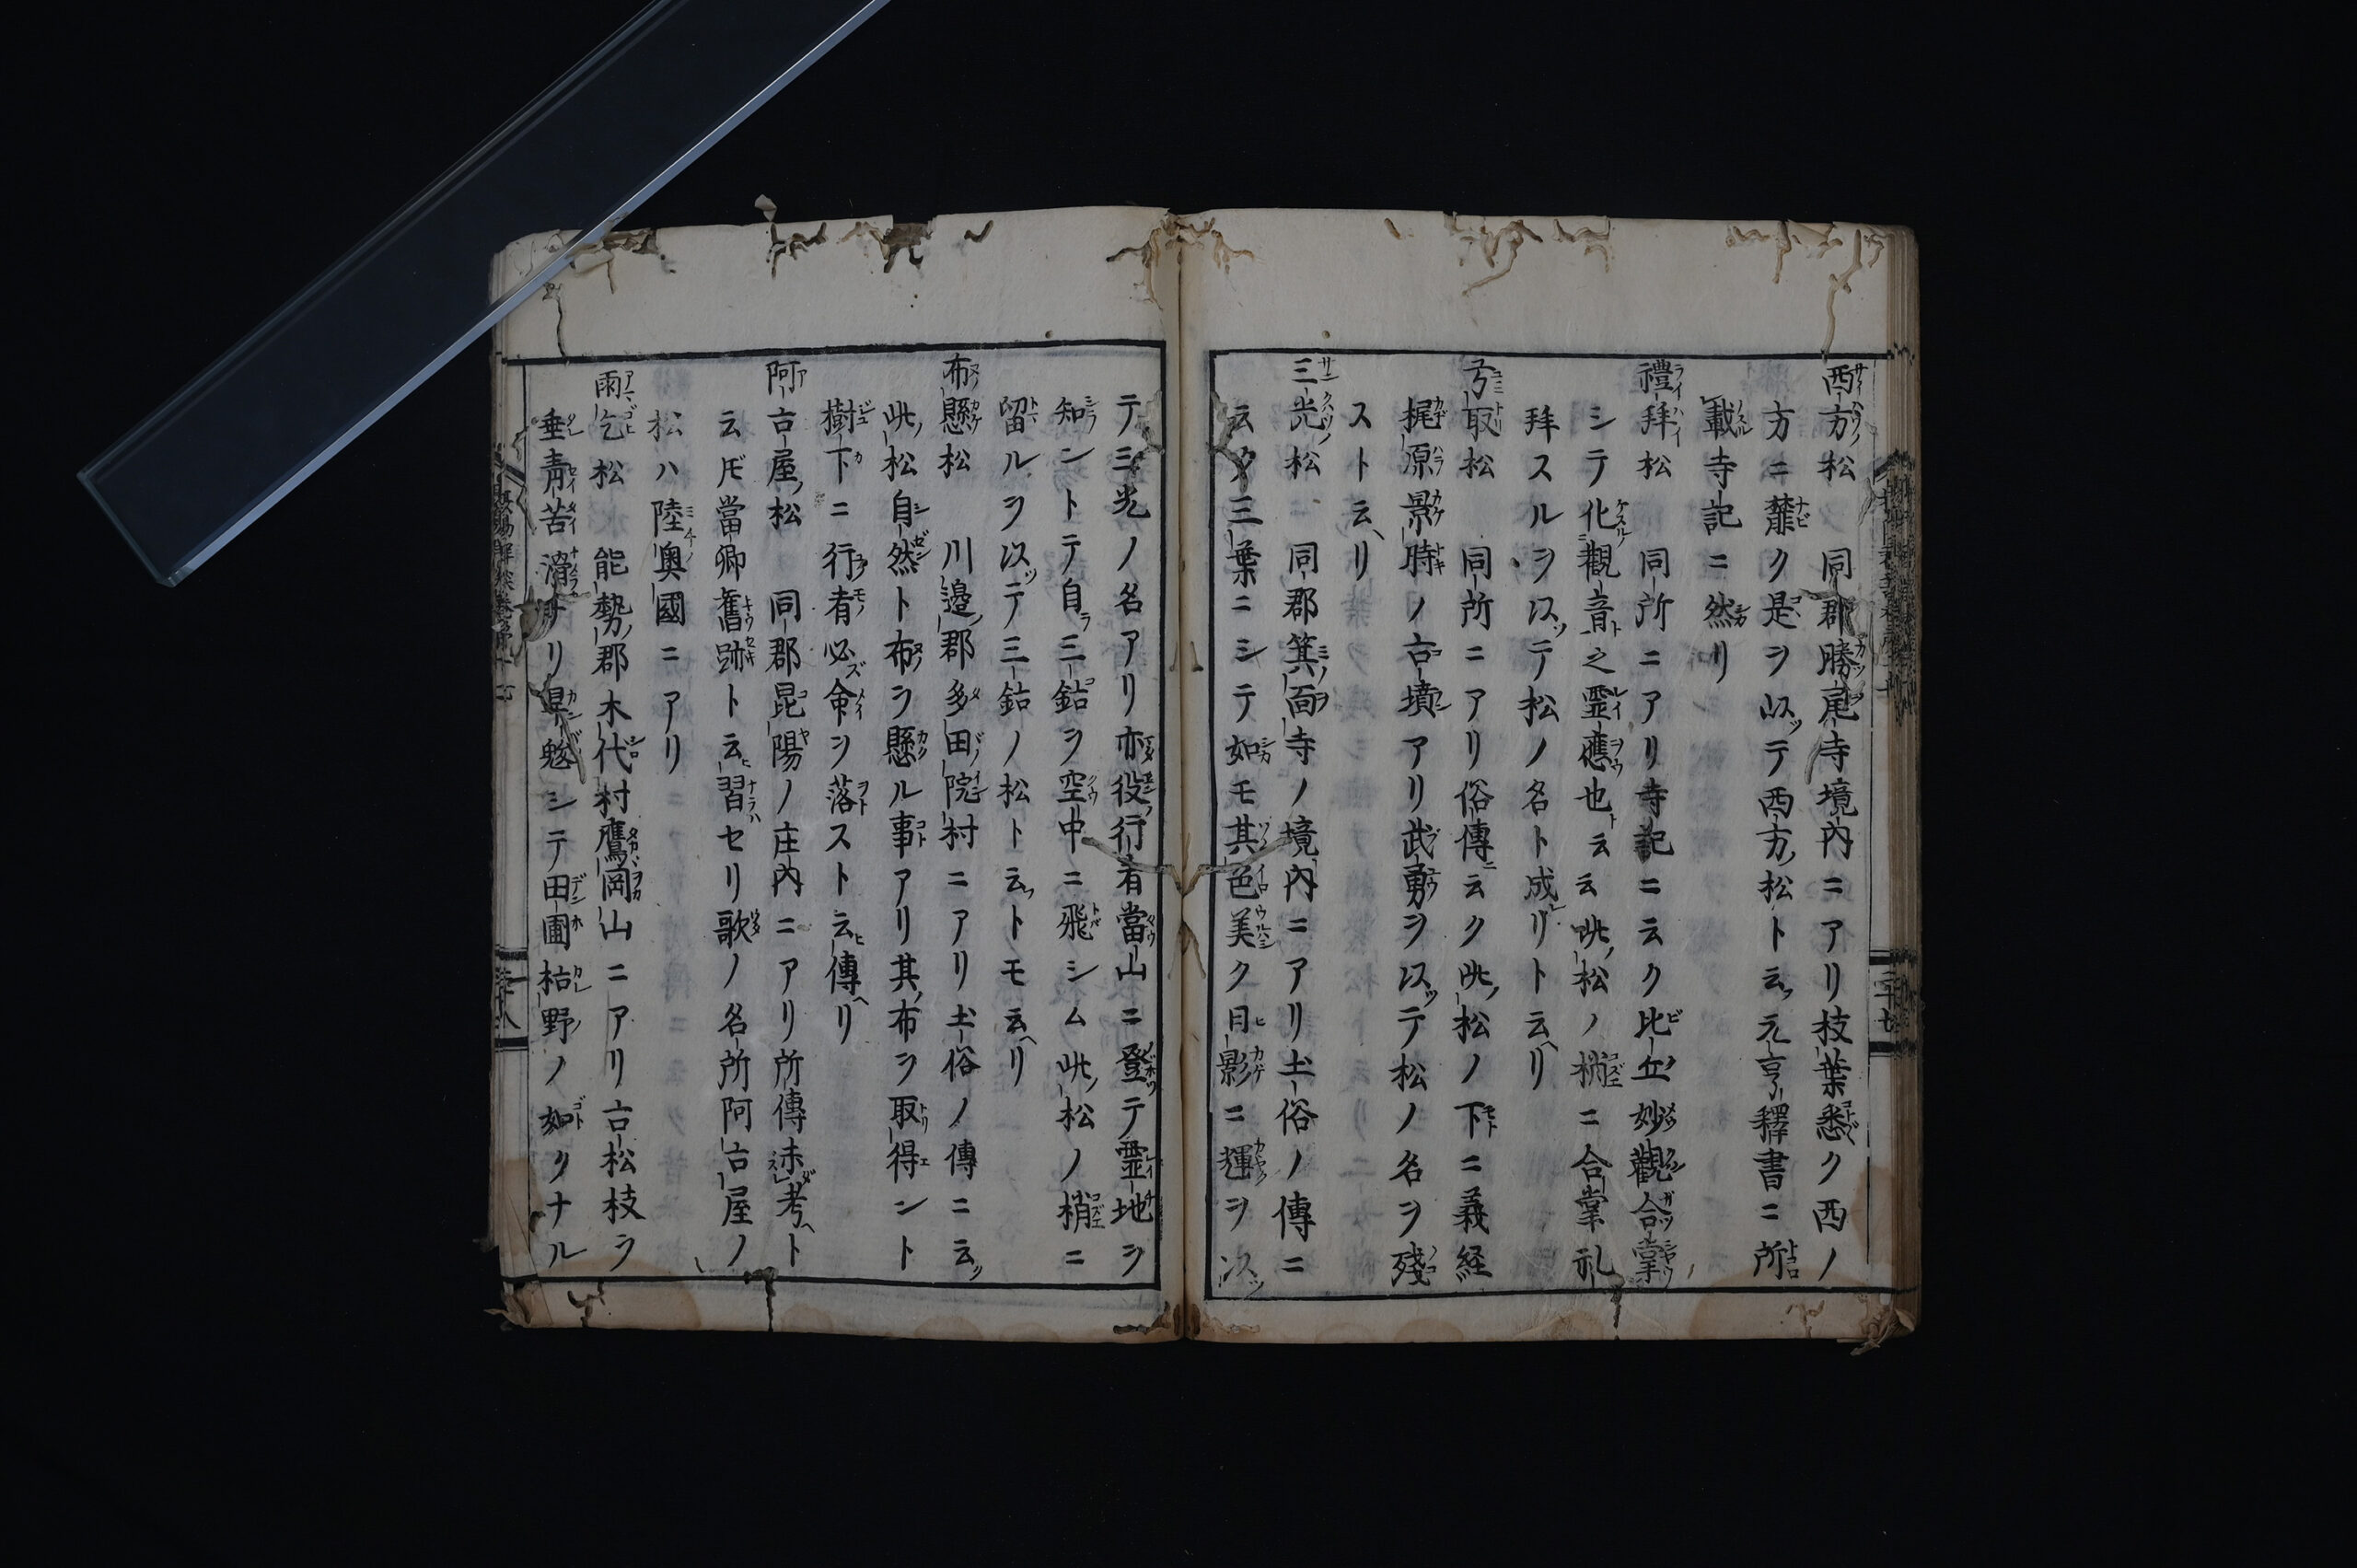 西方松　同郡勝尾寺境内ニアリ枝葉悉ク西ノ
方ニ靡ク是ヲ以テ西方松ト云元亨釋書ニ所
載寺記ニ然リ
禮拜松　同所ニアリ寺記ニ云ク比丘妙觀合掌
シテ化觀音之霊應也云云此松ノ梢ニ合掌礼
拜スルヲ以テ松ノ名ト成リト云リ
弓取松　同所ニアリ俗傳云ク此松ノ下ニ義経
梶原景時ノ古墳アリ武勇ヲ以テ松ノ名ヲ殘
スト云リ
三光松　同郡箕面寺ノ境内ニアリ土俗ノ傳ニ
云ク三葉ニシテ如モ其色美ク日影ニ輝ヲ以
テ三光ノ名アリ亦役行者當山ニ登テ霊地ヲ
知ントテ自三鈷ヲ空中ニ飛シム此松ノ梢ニ
留ルヲ以テ三鈷ノ松ト云トモ云リ
布懸松　川邉郡多田院村ニアリ土俗ノ傳ニ云
此松自然ト布ヲ懸ル事アリ其布ヲ取得ント
樹下ニ行者必命ヲ落スト云傳リ
阿古屋松　同郡昆陽ノ庄内ニアリ所傳未考ト
云ドモ當卿舊跡ト云習セリ歌ノ名所阿古屋ノ
松ハ陸奥國ニアリ
雨乞松　能勢郡木代村鷹岡山ニアリ古松枝ヲ
垂青苔滑ナリ旱魃シテ田圃枯野ノ如クナル